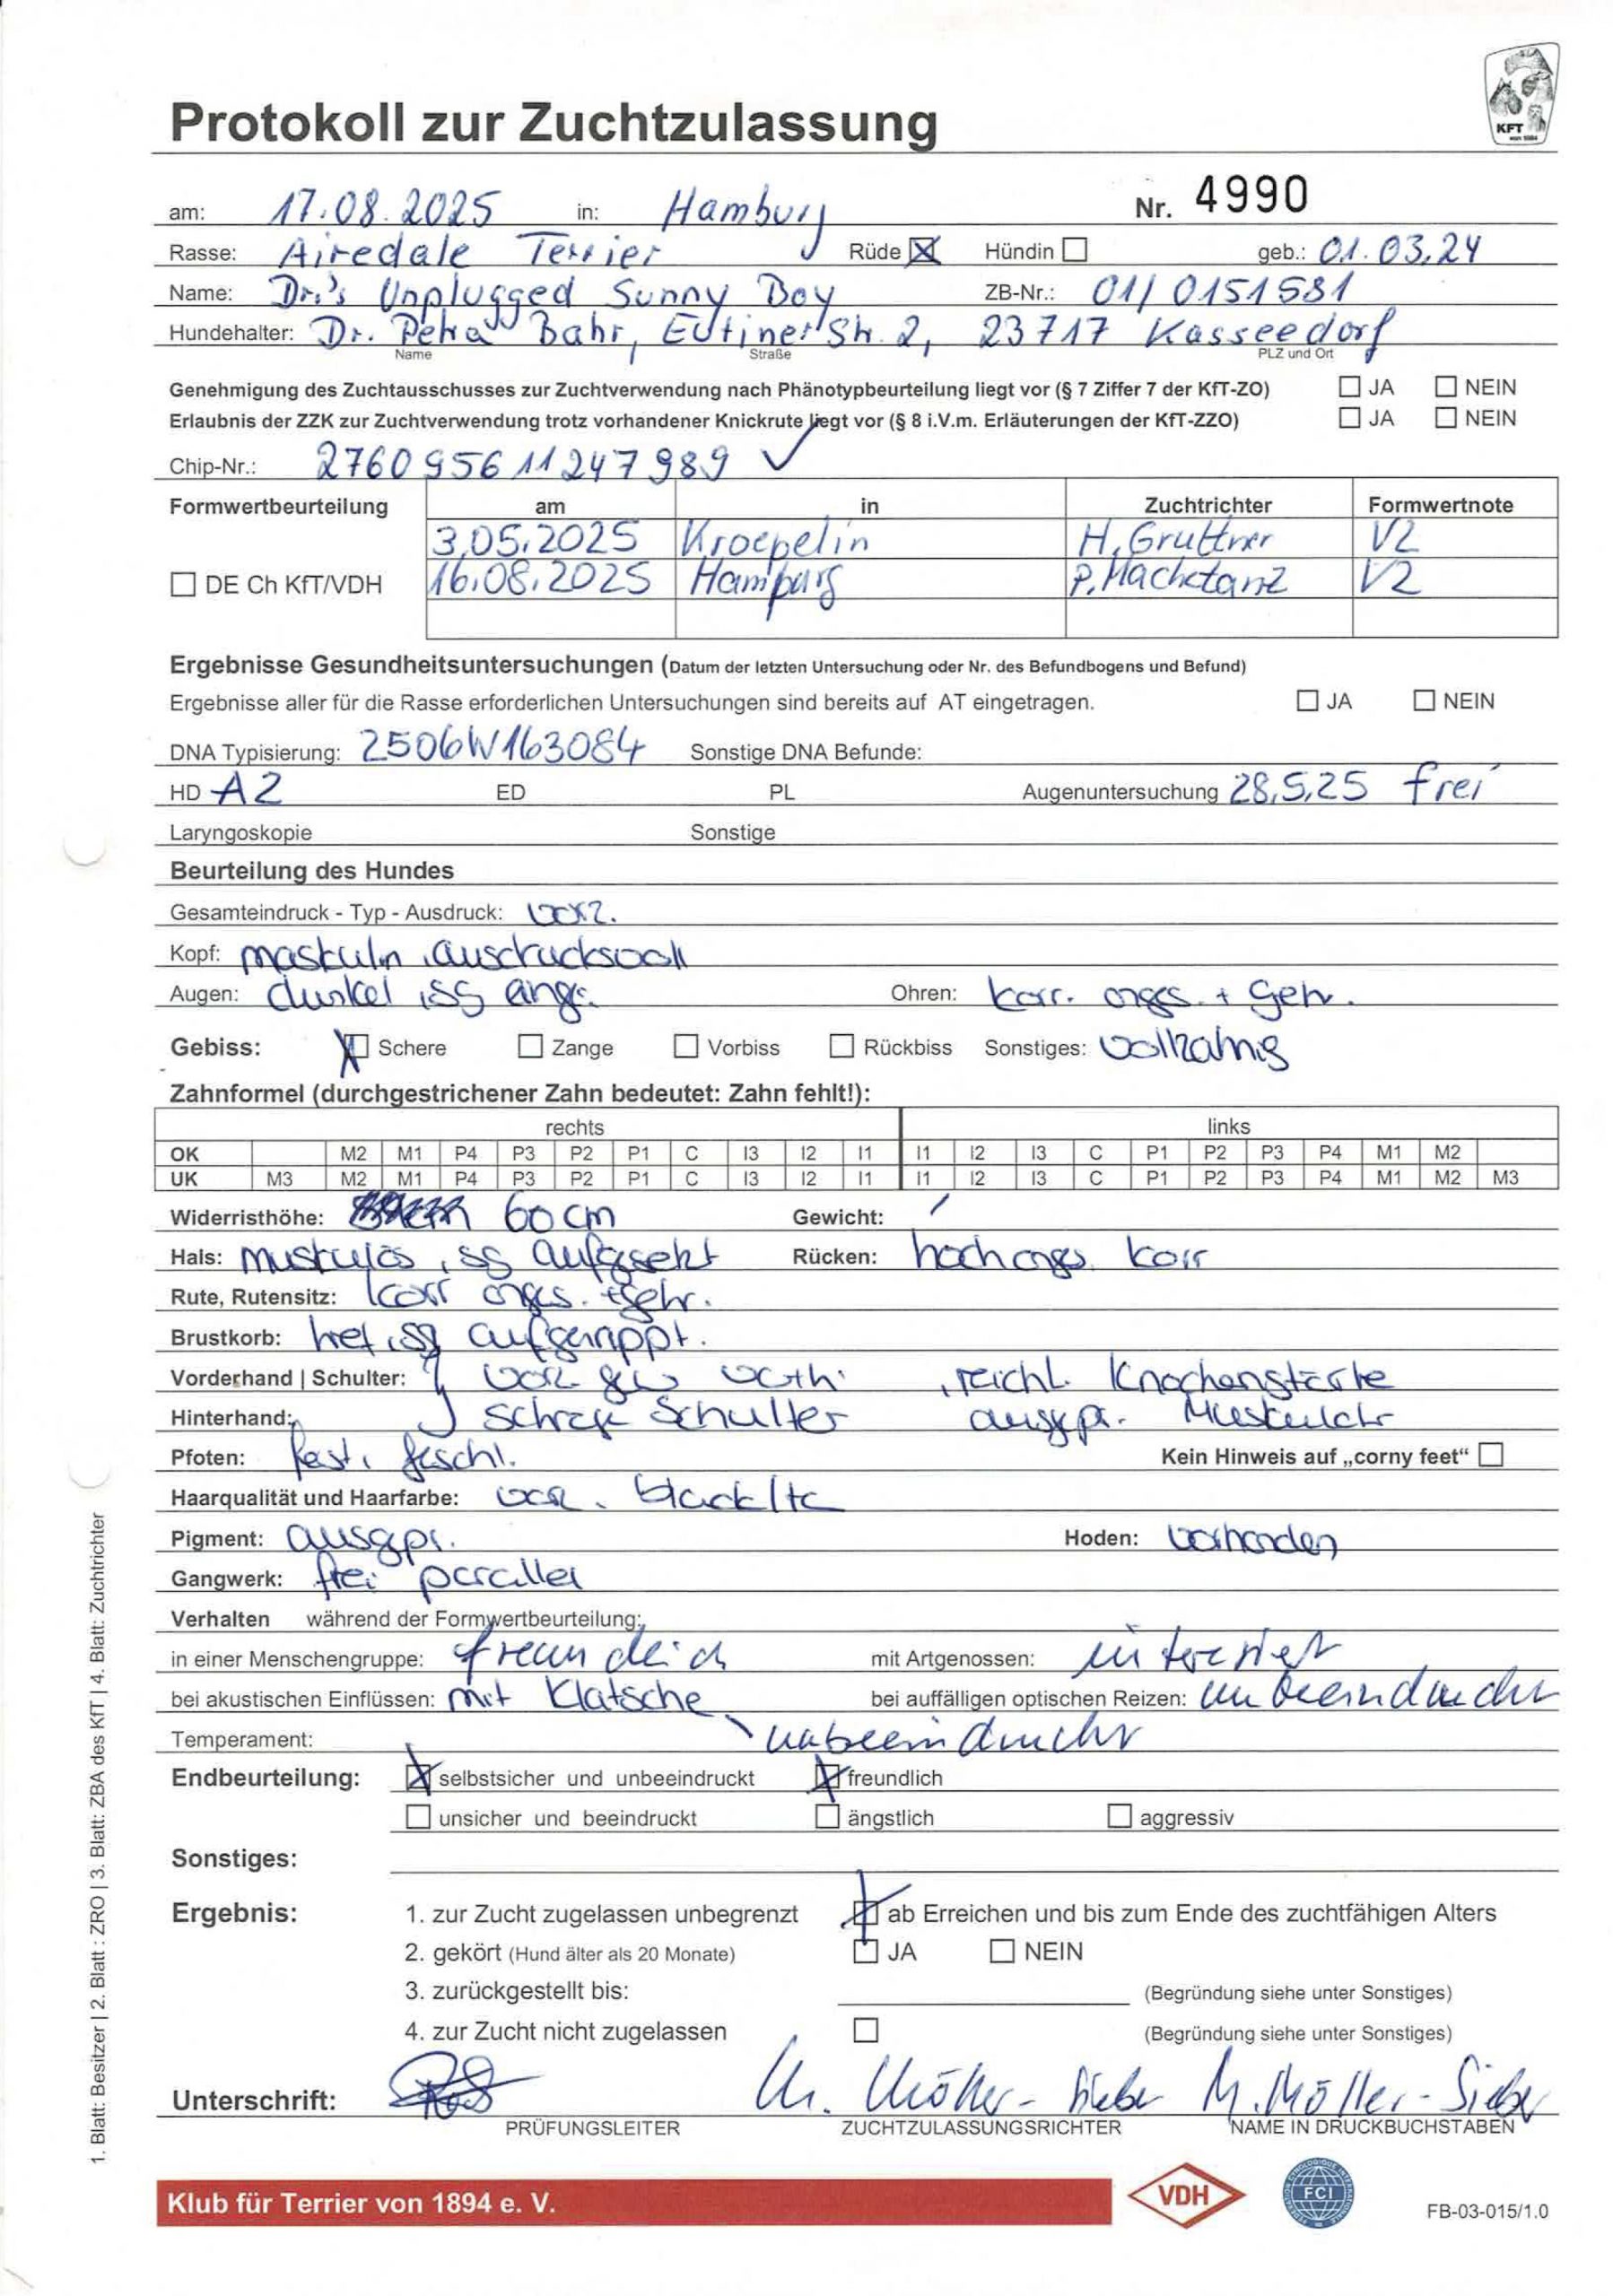 Protokoll zur Zuchtzulassung
KFT
von 1894
am: 17.08.2025 in: Hamburg Nr. 4990
Rasse: Airedale Terrier Rüde ☒ Hündin ☐ geb.: 01.03.24
Name: Dr.'s Unplugged Sunny Boy ZB-Nr.: 01/0151581
Hundehalter: Dr. Petra Bahr, Eutiner Str. 2, 23717 Kasseedorf
Name Straße PLZ und Ort
Genehmigung des Zuchtausschusses zur Zuchtverwendung nach Phänotypbeurteilung liegt vor (§ 7 Ziffer 7 der KfT-ZO) ☐ JA ☐ NEIN
Erlaubnis der ZZK zur Zuchtverwendung trotz vorhandener Knickrute liegt vor (§ 8 i.V.m. Erläuterungen der KfT-ZZO) ☐ JA ☐ NEIN
Chip-Nr.: 276095611247989 ✓
Formwertbeurteilung am in Zuchtrichter Formwertnote
3.05.2025 Kroepelin H. Gruttner V2
☐ DE Ch KfT/VDH 16.08.2025 Hamburg P. Machetanz V2
Ergebnisse Gesundheitsuntersuchungen (Datum der letzten Untersuchung oder Nr. des Befundbogens und Befund)
Ergebnisse aller für die Rasse erforderlichen Untersuchungen sind bereits auf AT eingetragen. ☐ JA ☐ NEIN
DNA Typisierung: 2506W163084 Sonstige DNA Befunde:
HD A2 ED PL Augenuntersuchung 28.5.25 frei
Laryngoskopie Sonstige
Beurteilung des Hundes
Gesamteindruck - Typ - Ausdruck: vorz.
Kopf: maskulin, ausdrucksvoll
Augen: dunkel, sg angs. Ohren: korr. anges. + getr.
Gebiss: ☒ Schere ☐ Zange ☐ Vorbiss ☐ Rückbiss Sonstiges: vollzahnig
Zahnformel (durchgestrichener Zahn bedeutet: Zahn fehlt!):
rechts links
OK M2 M1 P4 P3 P2 P1 C I3 I2 I1 I1 I2 I3 C P1 P2 P3 P4 M1 M2
UK M3 M2 M1 P4 P3 P2 P1 C I3 I2 I1 I1 I2 I3 C P1 P2 P3 P4 M1 M2 M3
Widerristhöhe: 60 cm Gewicht: /
Hals: muskulös, sg aufgesetzt Rücken: hoch angs. korr
Rute, Rutensitz: korr anges. + getr.
Brustkorb: tief, sg aufgerippt.
Vorderhand | Schulter: vorz , reichl. Knochenstärke
Hinterhand: schräge Schulter ausgpr. Muskulatr
Pfoten: fest, geschl. Kein Hinweis auf „corny feet“ ☐
Haarqualität und Haarfarbe: vorz. black/ta
Pigment: ausgpr. Hoden: vorhanden
Gangwerk: frei parallel
Verhalten während der Formwertbeurteilung:
in einer Menschengruppe: freundlich mit Artgenossen: interessiert
bei akustischen Einflüssen: mit Klatsche bei auffälligen optischen Reizen: unbeeindruckt
Temperament: unbeeindruckt
Endbeurteilung: ☒ selbstsicher und unbeeindruckt ☒ freundlich
☐ unsicher und beeindruckt ☐ ängstlich ☐ aggressiv
Sonstiges:
Ergebnis: 1. zur Zucht zugelassen unbegrenzt ☒ ab Erreichen und bis zum Ende des zuchtfähigen Alters
2. gekört (Hund älter als 20 Monate) ☐ JA ☐ NEIN
3. zurückgestellt bis: (Begründung siehe unter Sonstiges)
4. zur Zucht nicht zugelassen ☐ (Begründung siehe unter Sonstiges)
Unterschrift: M. Möller-Sieber M. Möller-Sieber
PRÜFUNGSLEITER ZUCHTZULASSUNGSRICHTER NAME IN DRUCKBUCHSTABEN
1. Blatt: Besitzer | 2. Blatt : ZRO | 3. Blatt: ZBA des KfT | 4. Blatt: Zuchtrichter
Klub für Terrier von 1894 e. V. VDH FCI FB-03-015/1.0